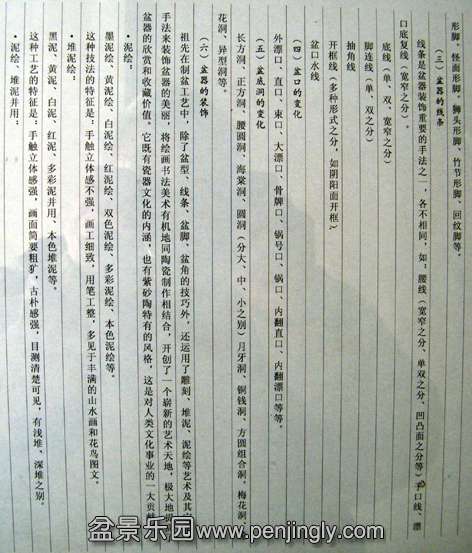 形脚、怪面形脚、狮头形脚、竹节形脚、回纹脚等。
（三）盆器的线条
线条是盆器装饰重要的手法之一，各不相同，如：腰线（宽窄之分、单双之分、凹凸面之分等）子口线、漂
口底复线（宽窄之分）。
底线（单、双、宽窄之分）
脚连线（单、双之分）
抽角线
开框线（多种形式之分，如阴阳面开框）
盆口水线
（四）盆口的变化
外漂口、直口、束口、大漂口、骨牌口、锅号口、锅口、内翻直口、内翻漂口等等。
（五）盆底洞的变化
长方洞、正方洞、腰圆洞、海棠洞、圆洞（分大、中、小之别）月牙洞、铜钱洞、方圆组合洞、梅花洞、
花洞、异型洞等。
（六）盆器的装饰
祖先在制盆工艺中，除了盆型、线条、盆脚、盆角的技巧外，还运用了雕刻、堆泥、泥绘等艺术及其
手法来装饰盆器的美丽，将绘画书法美术有机地同陶瓷制作相结合，开创了一个崭新的艺术天地，极大地
盆器的欣赏和收藏价值。它既有瓷器文化的内涵，也有紫砂陶特有的风格，这是对人类文化事业的一大贡献
·泥绘：
墨泥绘、黄泥绘、白泥绘、红泥绘、双色泥绘、多彩泥绘、本色泥绘等。
这种技法的特征是：手触立体感不强，画工细致，用笔工整，多见于丰满的山水画和花鸟图文。
·堆泥绘：
黑泥、黄泥、白泥、红泥、多彩泥并用、本色堆泥等。
这种工艺的特征是：手触立体感强，画面简要粗犷，古朴感强，目测清楚可见，有浅堆、深堆之别。
·泥绘、堆泥并用：
盆景乐园 www.penjingly.com